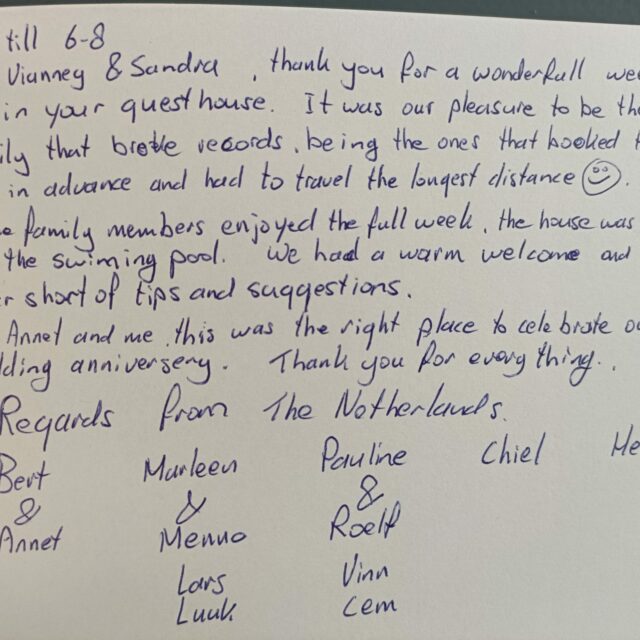 till 6-8
Vianney & Sandra, thank you for a wonderfull
in your guesthouse. It was our pleasure to be
that broke records, being the ones that booked
in advance and had to travel the longest distance ☺.
family members enjoyed the full week, the house was
the swiming pool. We had a warm welcome and
short of tips and suggestions.
Annet and me, this was the right place to celebrate
anniversery. Thank you for every thing..
Regards from The Netherlands.
Bert Marleen Pauline Chiel
& & &
Annet Menno Roelf
Lars Vinn
Luuk Cem